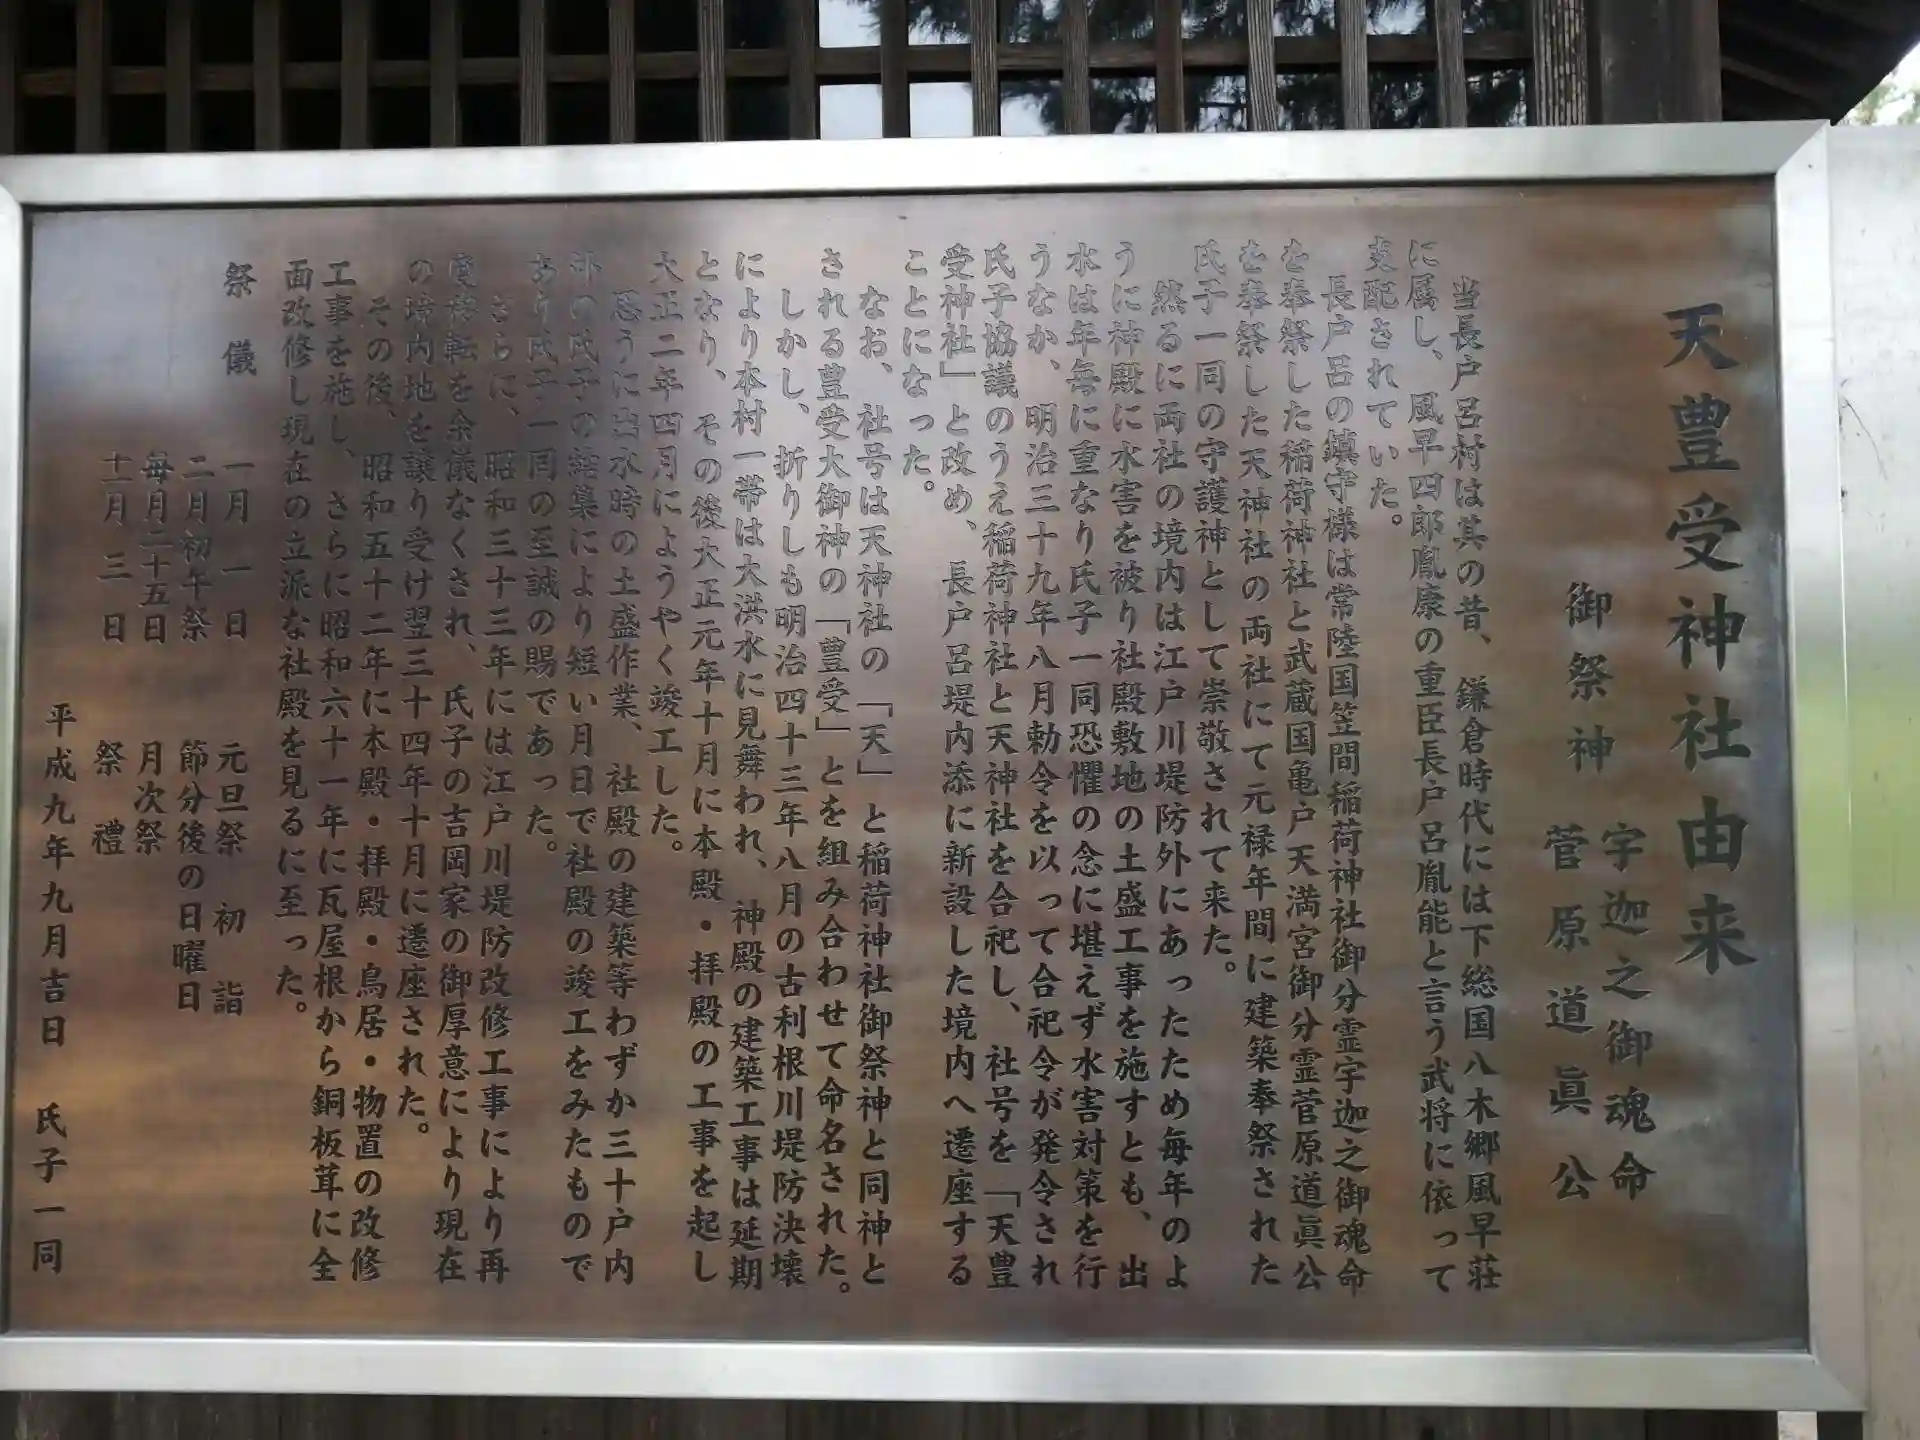 天豊受神社由来
御祭神 宇迦之御魂命
菅原道眞公
当長戸呂村は其の昔、鎌倉時代には下総国八木郷風早荘
に属し、風早四郎胤康の重臣長戸呂胤能と言う武将に依って
支配されていた。
長戸呂の鎮守様は常陸国笠間稲荷神社御分霊宇迦之御魂命
を奉祭した稲荷神社と武蔵国亀戸天満宮御分霊菅原道眞公
を奉祭した天神社の両社にて元禄年間に建築奉祭された
氏子一同の守護神として崇敬されて来た。
然るに両社の境内は江戸川堤防外にあったため毎年のよ
うに神殿に水害を被り社殿敷地の土盛工事を施すとも、出
水は年毎に重なり氏子一同恐懼の念に堪えず水害対策を行
うなか、明治三十九年八月勅令を以って合祀令が発令され
氏子協議のうえ稲荷神社と天神社を合祀し、社号を「天豊
受神社」と改め、長戸呂堤内添に新設した境内へ遷座する
ことになった。
なお、社号は天神社の「天」と稲荷神社御祭神と同神と
される豊受大御神の「豊受」とを組み合わせて命名された。
しかし、折りしも明治四十三年八月の古利根川堤防決壊
により本村一帯は大洪水に見舞われ、神殿の建築工事は延期
となり、その後大正元年十月に本殿・拝殿の工事を起し
大正二年四月にようやく竣工した。
思うに出水時の土盛作業、社殿の建築等わずか三十戸内
外の氏子の結集により短い月日で社殿の竣工をみたもので
あり氏子一同の至誠の賜であった。
さらに、昭和三十三年には江戸川堤防改修工事により再
度移転を余儀なくされ、氏子の吉岡家の御厚意により現在
の境内地を譲り受け翌三十四年十月に遷座された。
その後、昭和五十二年に本殿・拝殿・鳥居・物置の改修
工事を施し、さらに昭和六十一年に瓦屋根から銅板茸に全
面改修し現在の立派な社殿を見るに至った。
祭儀 一月一日 元旦祭 初詣
二月初午祭 節分後の日曜日
毎月二十五日 月次祭
十一月三日 祭禮
平成九年九月吉日 氏子一同